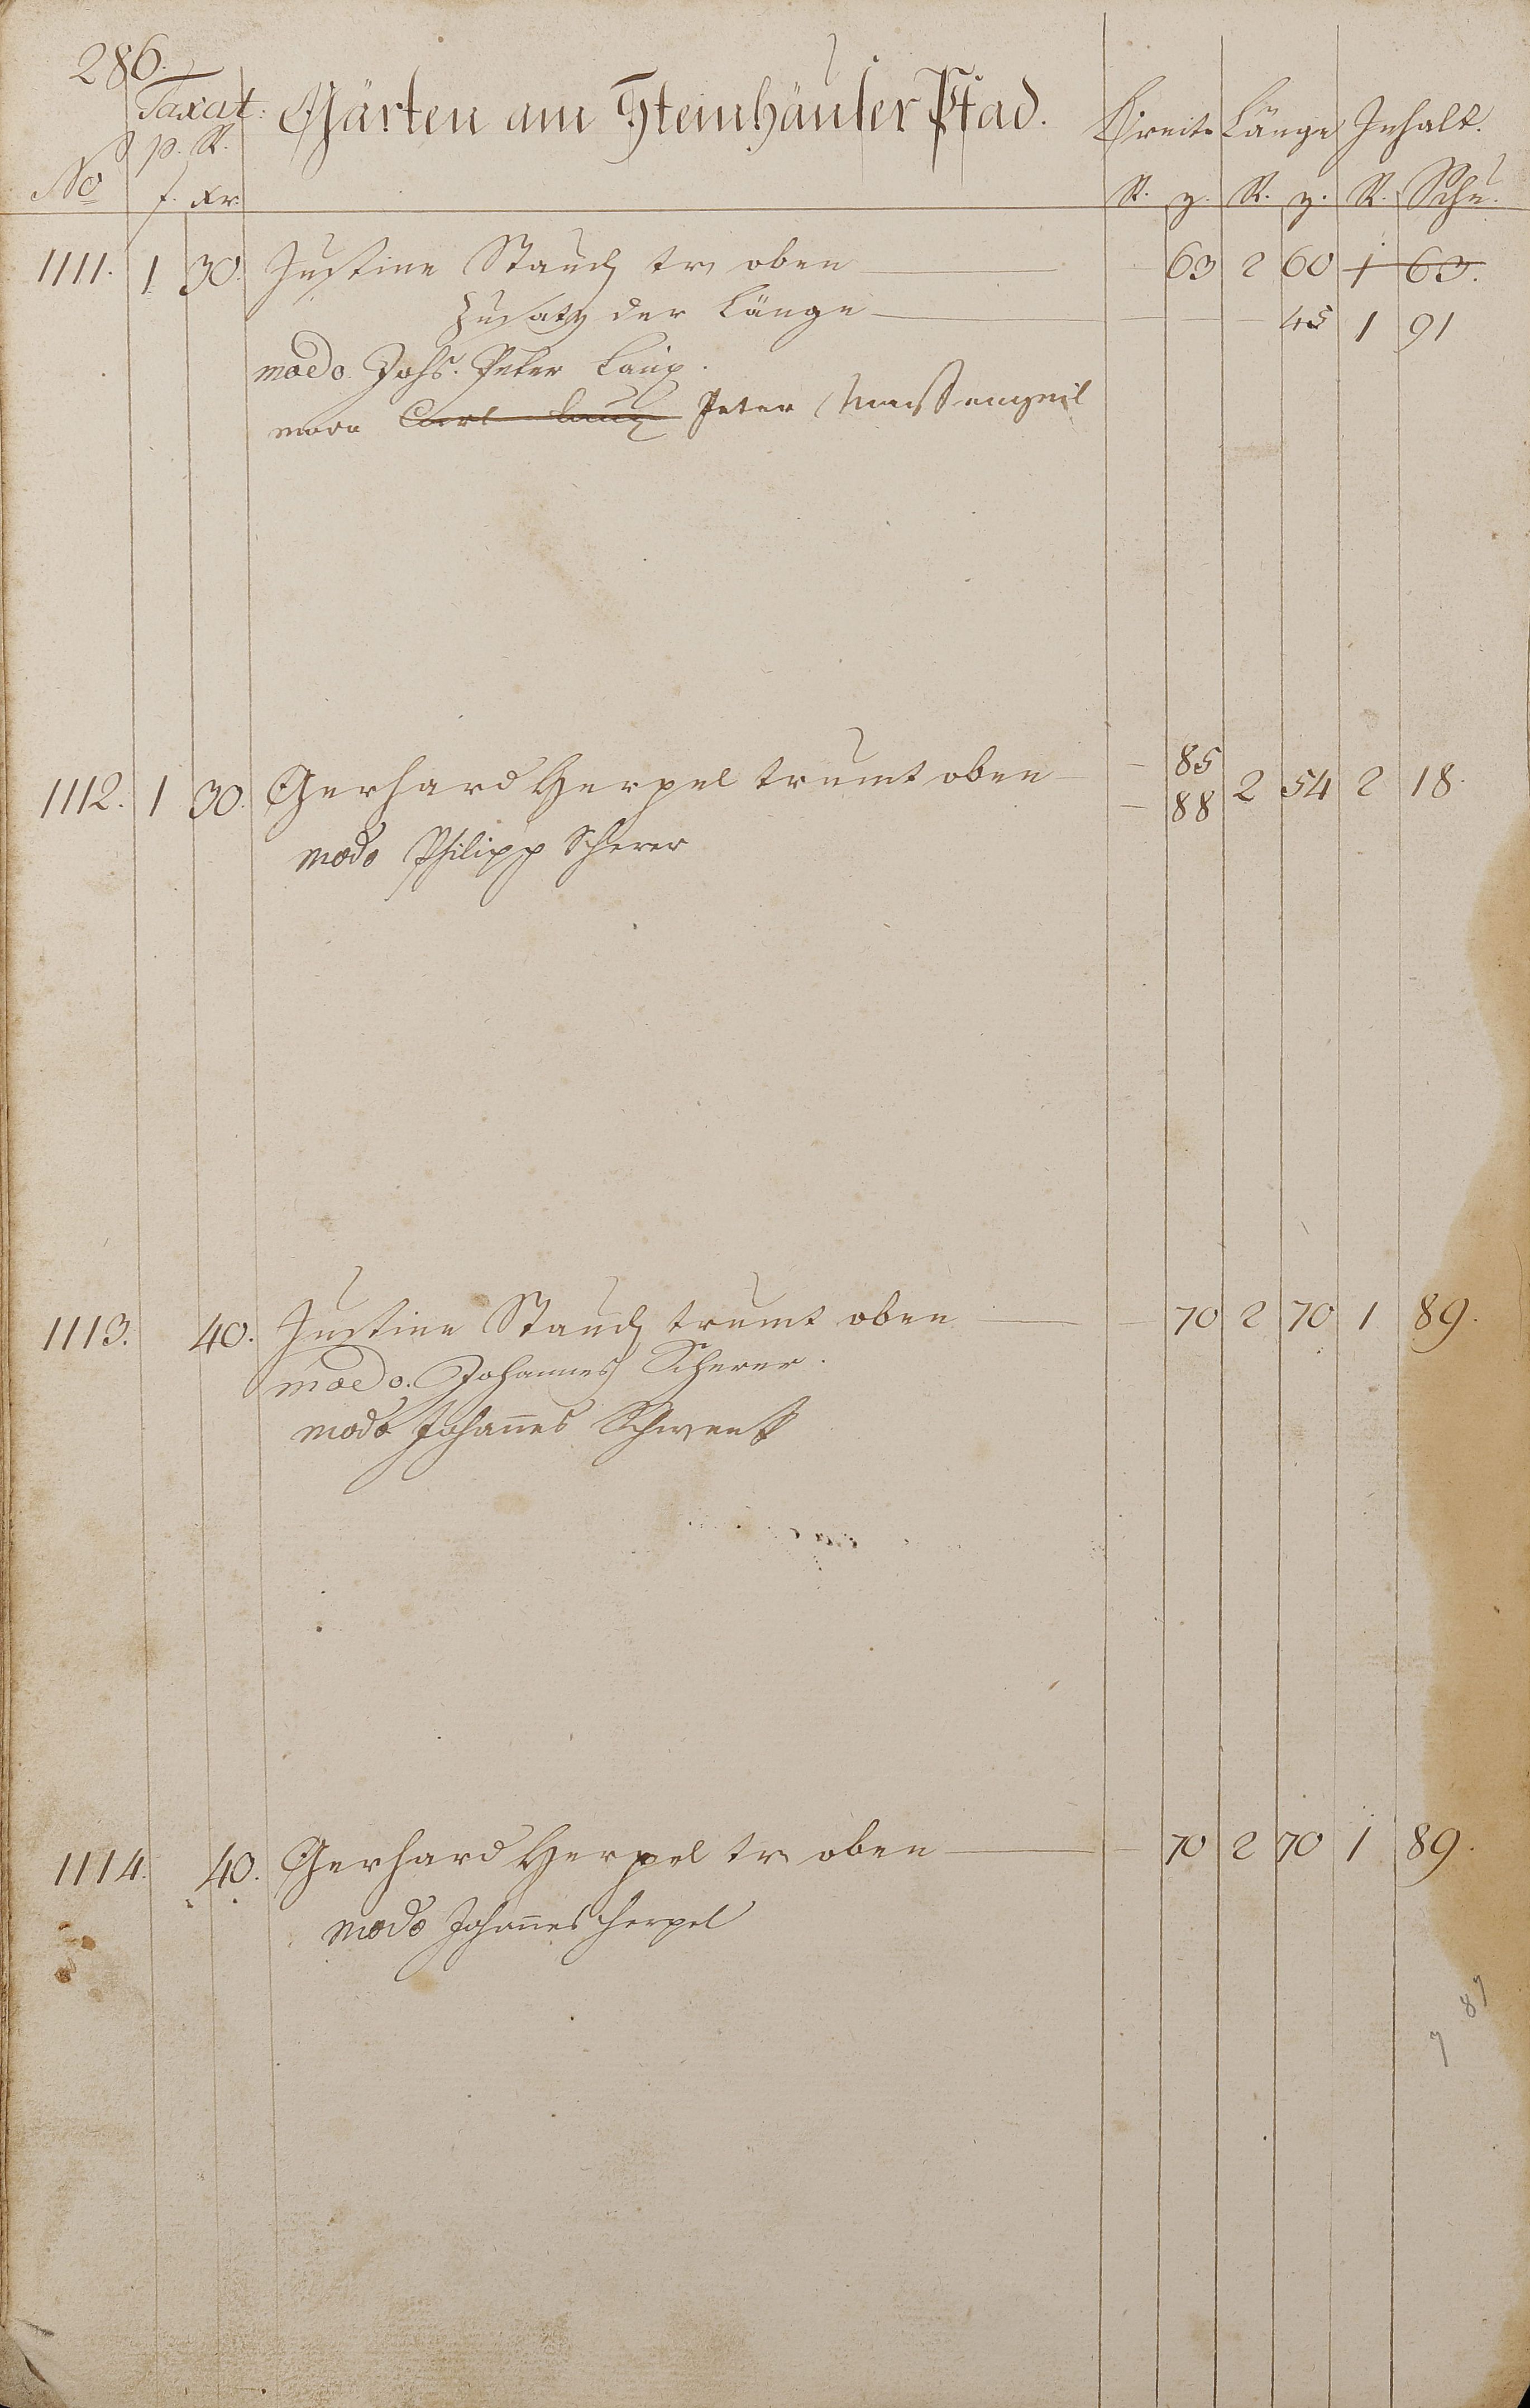 286.
Taxat: Gärten am Steinhäuser Pfad. Breite Länge Inhalt.
p. R.
No f. xr. R. z. R. z. R. Schu.
1111. 1 30. Justine Stauch tr oben 63 2 60 1 63.
Zusatz der Länge 45 1 91
modo Johs. Peter Laux.
modo Carl Laux Peter Massengeil
1112. 1 30. Gerhard Herpel trumt oben 85 88 2 54 2 18.
modo Philipp Scherer
1113. 40. Justine Stauch trumt oben 70 2 70 1 89.
modo. Johannes Scherer.
modo Johannes Schwenk
1114. 40. Gerhard Herpel tr oben 70 2 70 1 89.
modo Johannes Herpel
87
7